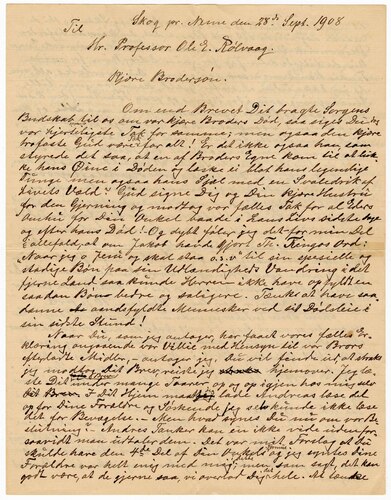 Skog pr. Nesne den 28de Sept. 1908
Til
Hr. Professor Ole E. Rölvaag.
Kjære Brodersön.
Om end Brevet Dit bragte Sorgens
Budskab til os om vor kjære Broders Död, saa siges Dig
vor hjerteligste Tak for samme; men ogsaa den kjære
trofaste Gud være for alt! Er det ikke ogsaa han som
styrede det saa, at en af Broders Egne kom til at lukke
hans Öine i Döden og lægge
Tunge men ogsaa hans Sjæl med en
Livets Vald" Gud signe Dig og Din kjære Hustru
for den Gjerning og modtag vor fælles Tak for al Eders
Omhu for Din Onkel baade i hans Livs sidste
og efter hans Död! Og dybt föler jeg det for min Del
i alle fald, om at Jakob havde gjort Th. Kingos Ord:
"Naar jeg o Jesu ei skal staa o.s.v." til sin specielle og
stadige Bön paa sin Udlændigheds Vandring i det
fjerne Land saa kunde Herren ikke have opfyldt en
saadan Bön bedre og saligere. Tænk at have saa-
danne Mennesker ved sit Dödsleie i
sin sidste Stund!
Naar Du, som jeg antager, har faaet vores fælles Er-
klæring angaaende vor Villie med Hensyn til vor Brors
efterladte Midler, antager jeg Du vil finde ut at straks
jeg modtog Dit Brev reiste jeg hjemover. Jeg læ-
ste Dit under mange Taarer op og op igjen hos mig
I Dit Hjem lod Andreas læse det
for Dine Forældre og Söskende jeg selv kunde ikke læse
det for Bevægelse. Men hvad synes Du nu om vor Be-
slutning? Andres Tanker kan ikke vide uden for-
saavidt man uttaler dem. Det var mit Forslag at Du
skulde have den 4de Del af Din Onkels og jeg syntes Dine
Forældre var helt enig med mig; men som sagt, det kan
godt være, at de gjerne saa, vi overlod Dig hele. At tænke